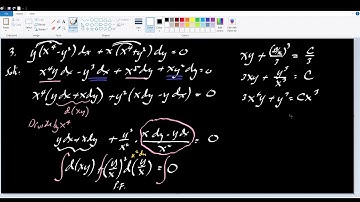 3. y(x⁴ - y²)dx + x(x⁴ + y²)dy = 0
Sol: x⁴y dx - y³dx + x⁵dy + xy²dy = 0
x⁴(y dx + x dy) + y²(x dy - y dx) = 0
d(xy)
Divide by x⁴
y dx + x dy + y²/x² · (x dy - y dx)/x² = 0
∫d(xy) + ∫(y/x)² d(y/x) = ∫0
I.F.
xy + (y/x)³/3 = C/3
3xy + y³/x³ = C
3x⁴y + y³ = Cx³